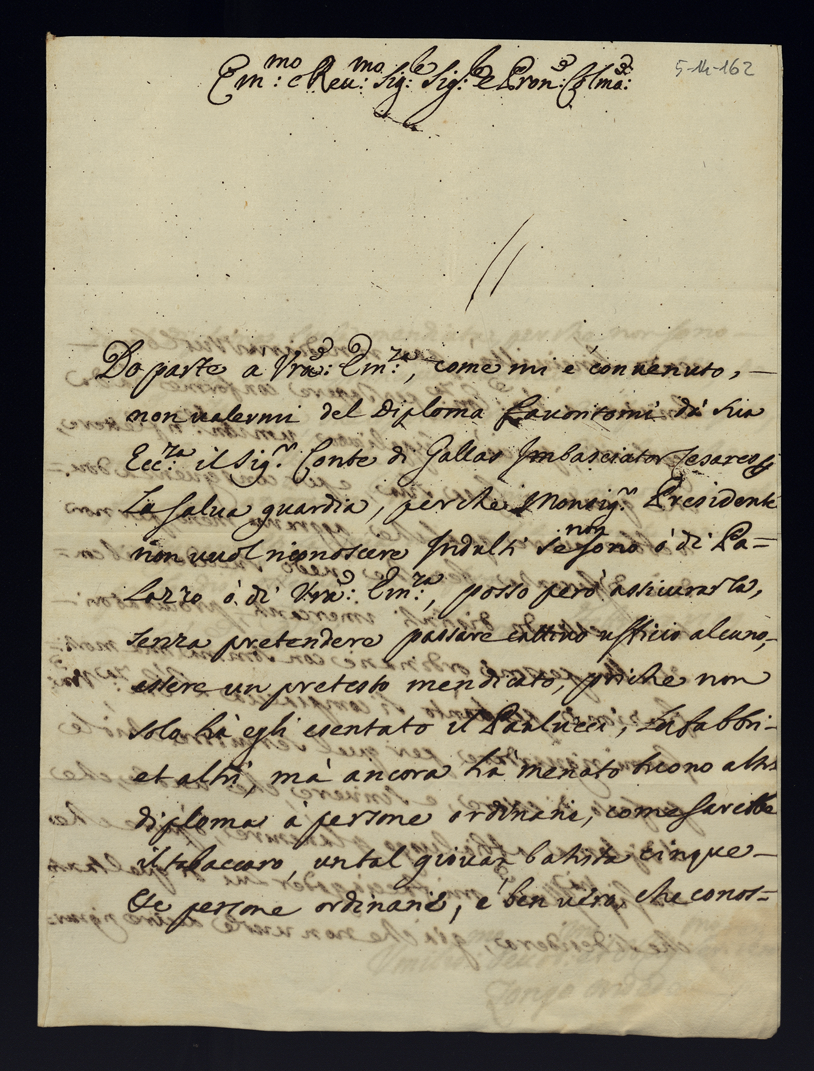 Em:mo e Reu:mo Sig:re Sig:re e Pron:e Colmo:
5-14-162
Do parte a Vra: Em:za, come mi è conuenuto,
non ualermi del Diploma fauoritomi dà sua
Ecc:za il Sig:r Conte di Gallas Imbasciator Cesareo p
La salua guardia, perche Monsig:r Presidente
non uuol riconoscere Indulti se non sono ò di Pa=
lazzo ò di Vra: Em:za, posso però assicurarla,
senza pretendere passare cattiuo ufficio alcuno,
essere un pretesto mendicato, poiche non
solo hà egli esentato il Paulucci,
et altri, mà ancora hà menato buono altro
diploma à persone ordinarie, come sarebbe
il tabaccaro, un tal giouan batista cinque
persone ordinarie, è ben uero, che conos=